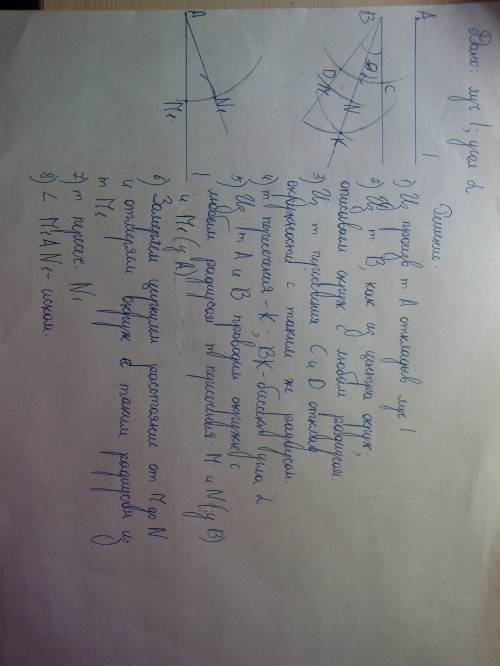 Дано: луч l; угол α
Решение:
A
l
B
α
C
D
M
N
K
A
N₁
M₁
l
1) Из произв т A откладыв луч l
2) Из т B, как из центра окруж,
описываем окруж с любым радиусом.
3) Из т пересечения C и D отклад
окружности с таким же радиусом.
4) т пересечения - K; BK - биссектр угла α
5) Из т A и B проводим окружн с
любым радиусом т пересечения M и N (у B)
и M₁ (у A)
6) Замеряем циркулем расстояние от M до N
и отмеряем окруж с таким радиусом из
т M₁.
7) т пересеч N₁
8) ∠ M₁AN₁ - иском.